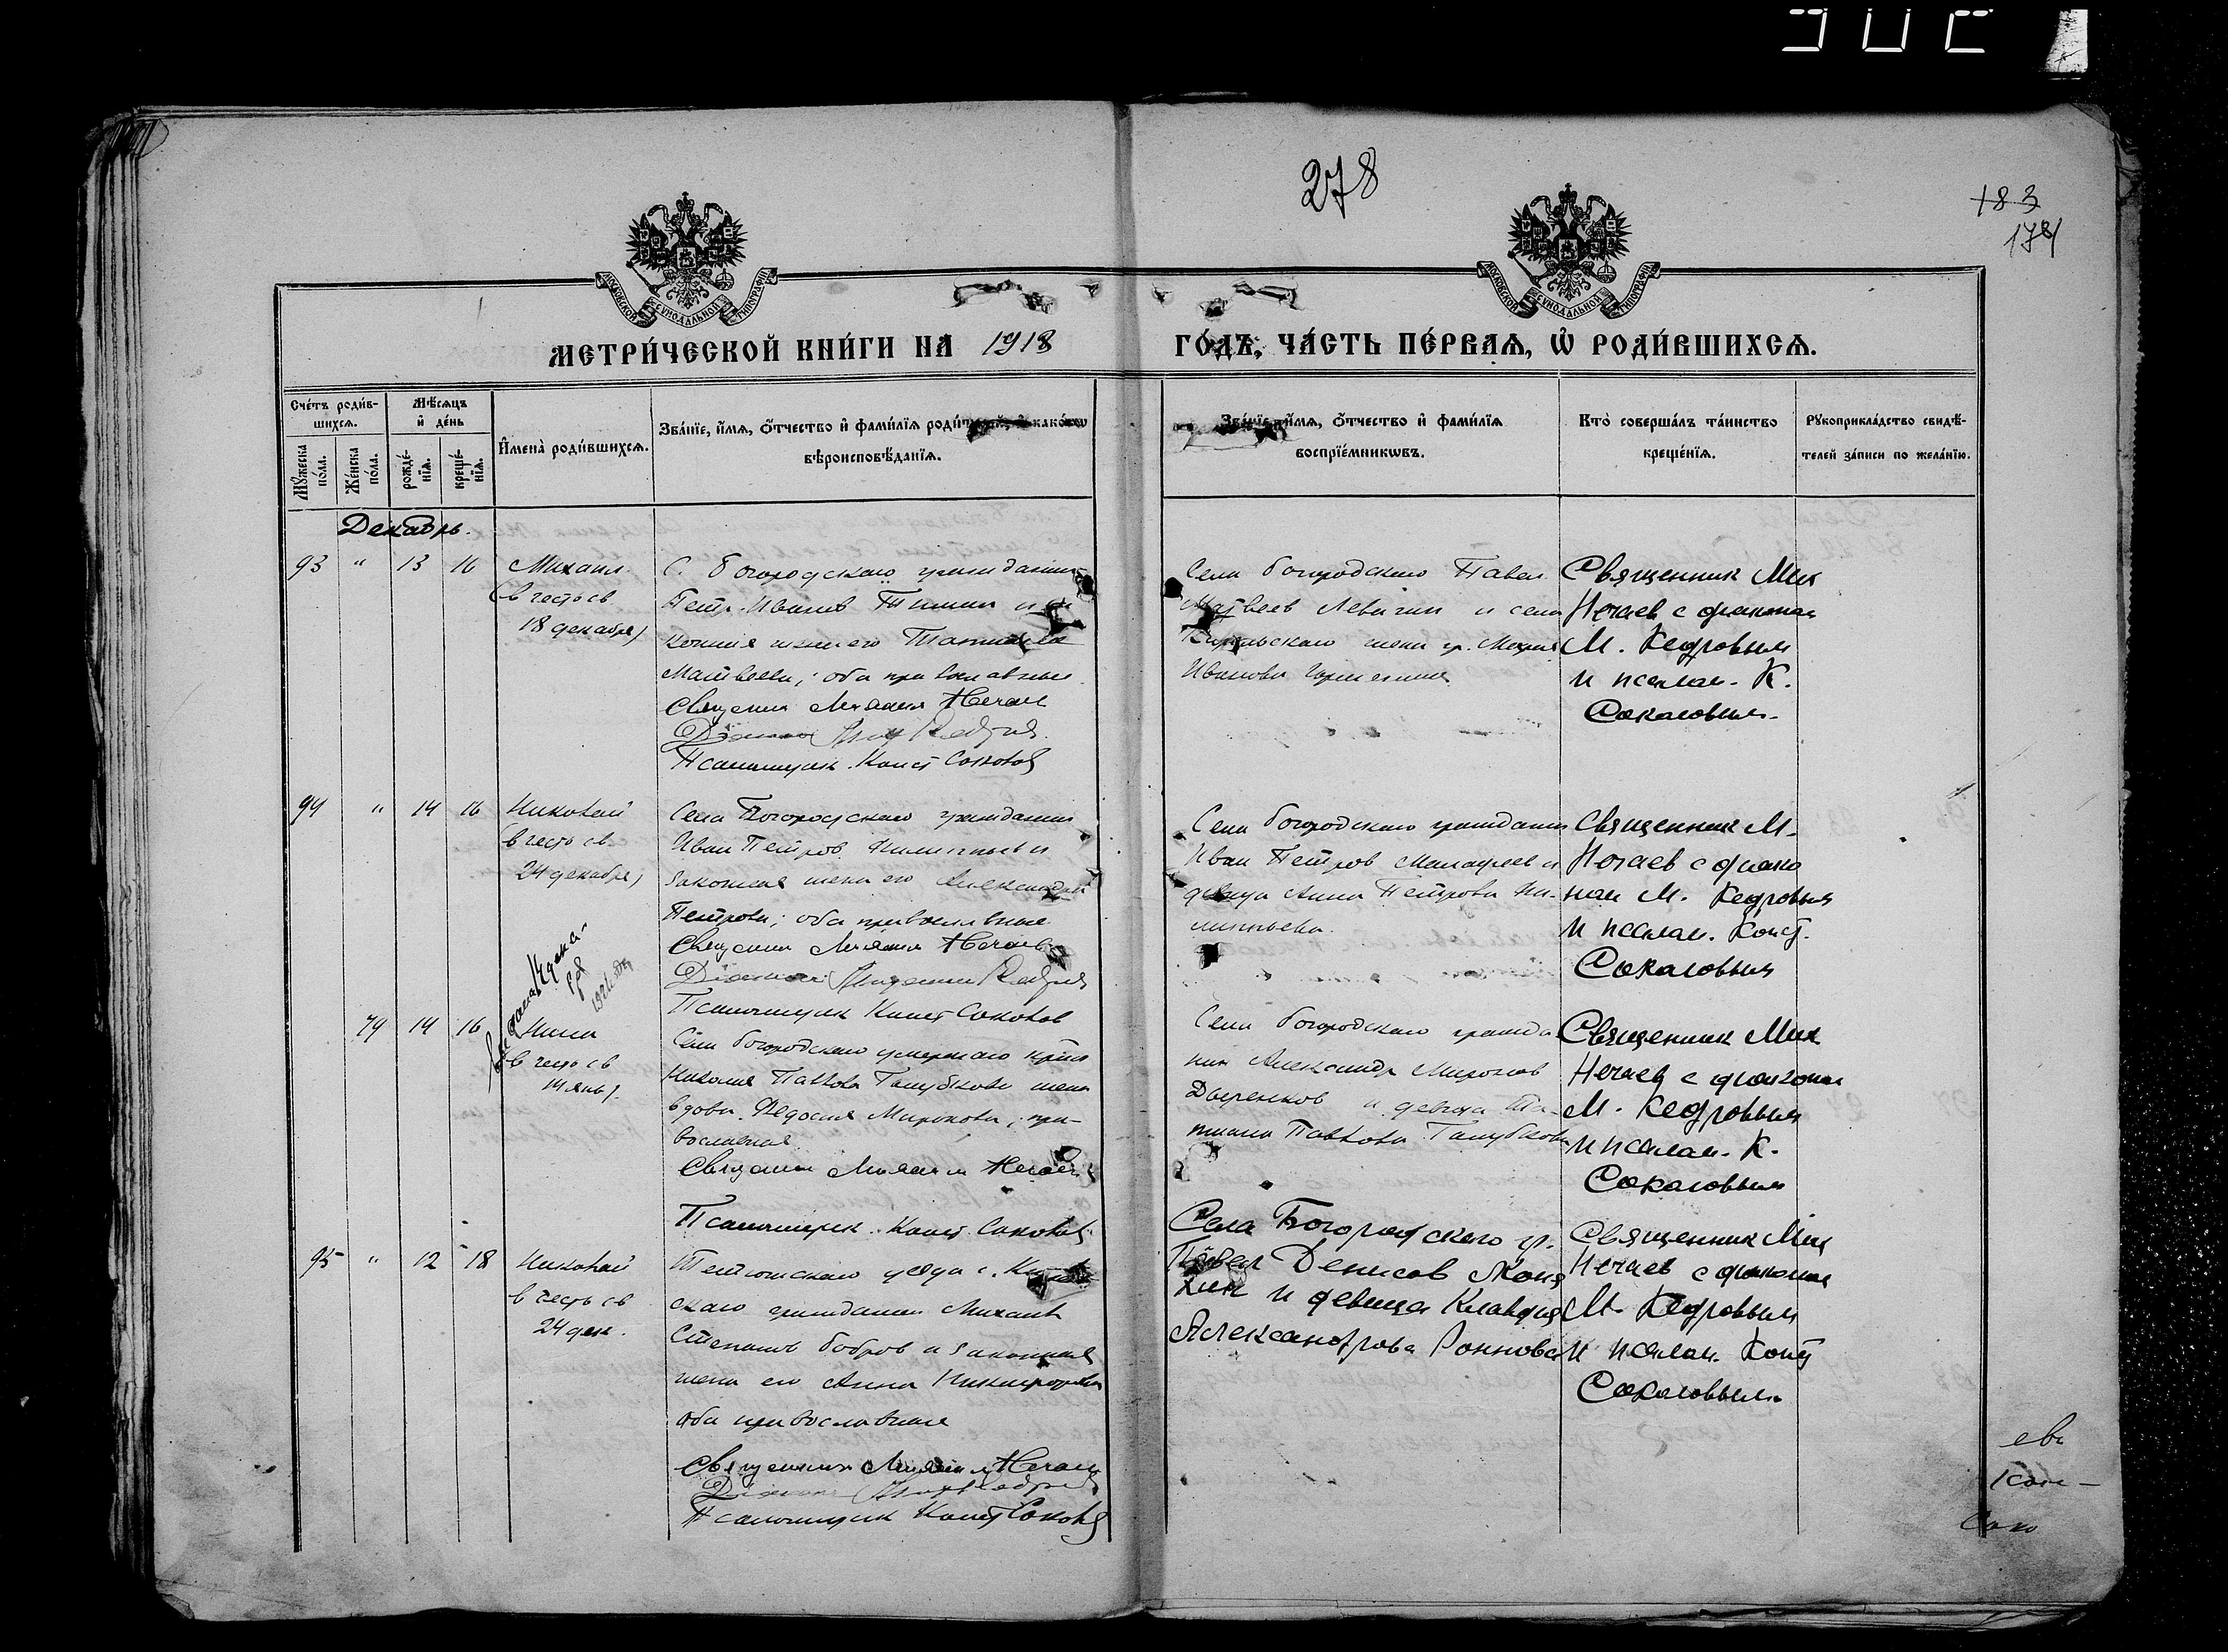 278
183
178
МОСКОВСКОЙ СѴНОДАЛЬНОЙ ТИПОГРАФІИ
МОСКОВСКОЙ СѴНОДАЛЬНОЙ ТИПОГРАФІИ
МЕТРИ́ЧЕСКОЙ КНИ́ГИ НА 1918
ГО́ДЪ, ЧА́СТЬ ПЕ́РВАѦ, Ѡ҆ РОДИ́ВШИХСѦ.
Сче́тъ роди́в-
шихсѧ.
Мѣ́сѧцъ
и҆ де́нь
Мꙋ́жеска
по́ла.
Же́нска
по́ла.
рожде́-
нїѧ.
креще́-
нїѧ.
И҆мена̀ роди́вшихсѧ.
Зва́нїе, и҆́мѧ, ѻ҆́тчество и҆ фами́лїѧ
вѣроисповѣ́данїѧ.
Зва́нїе, и҆́мѧ, ѻ҆́тчество и҆ фами́лїѧ
воспрїе́мникѡвъ.
Кто̀ соверша́лъ та́инство
креще́нїѧ.
Рꙋкоприкла́дство свидѣ́-
телей за́писи по жела́нїю.
Декабрь.
93 " 13 16 Михаил
(в честь св
18 декабря)
С. Богородского гражданин
Петр Иванов
жена его Татиана
Матвеева; оба православные
Священник Михаил Нечаев
Диакон Мих Кедров
Псаломщик Конст Соколов
Села Богородского Павел
Матвеев Левагин и села
жена гр. Мария
Иванова
Священник Мих
Нечаев с диаконом
М. Кедровым
и псалом. К.
Соколовым
94 " 14 16 Николай
в честь св.
24 декабря)
Села Богородского гражданин
Иван Петров и
законная жена его Александра
Петрова; оба православные
Священник Михаил Нечаев
Диакон Михаил Кедров
Псаломщик Конст Соколов
Села Богородского гражданин
Иван Петров и
девица Анна Петрова
Священник М.
Нечаев с диако
ном М. Кедровым
и псалом. Конст.
Соколовым
79 14 16 Нина
в честь св
14 янв).
Села Богородского умершего
Николая Павлова Голубкова жена
вдова Федосия Миронова, пра-
вославная
Священник Михаил Нечаев
Псаломщик Конст Соколов
Села Богородского гражда
нин Александр Миронов
и девица Та-
тиана Павлова Голубкова
Священник Мих
Нечаев с диаконом
М. Кедровым
и псалом. К.
Соколовым
95 " 12 18 Николай
в честь св
24 дек.
Тетюшского уезда с.
ского гражданин Михаил
Степанов Бобров и законная
жена его Анна
оба православные
Священник Михаил Нечаев
Диакон Мих Кедров
Псаломщик Конст Соколов
Села Богородского гр.
Павел Денисов
и девица Клавдия
Александрова
Священник Мих
Нечаев с диаконом
М. Кедровым
и псалом. Конст
Соколовым